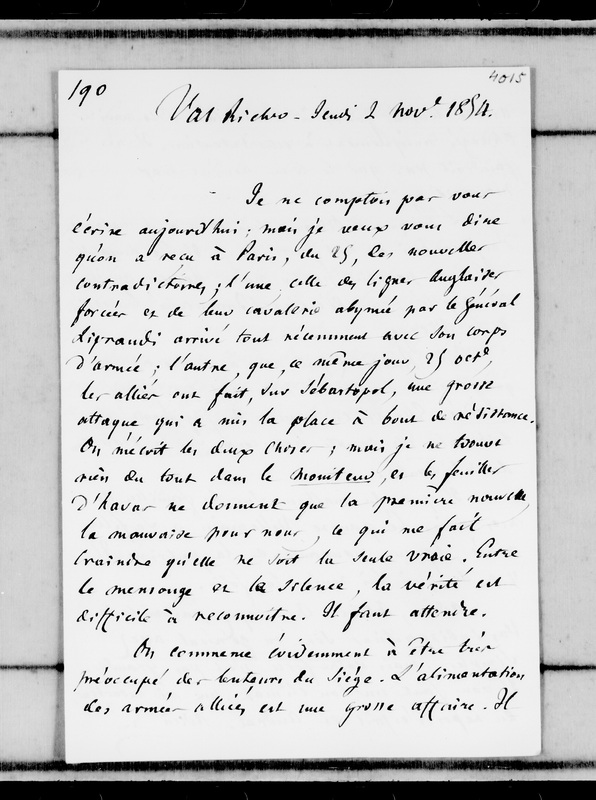 190
4015
Val Richer - Jeudi 2 Nov.e 1854.
Je ne comptois pas vous
écrire aujourd'hui ; mais je veux vous dire
qu'on a reçu à Paris, du 25, des nouvelles
contradictoires ; l'une, celle des lignes Anglaises
forcées et de leur cavalerie abymée par le Général
Liprandi arrivé tout récemment avec son corps
d'armée ; l'autre, que, ce même jour, 25 octe,
les alliés ont fait, sur Sébastopol, une grosse
attaque qui a mis la place à bout de résistance.
On m'écrit les deux choses ; mais je ne trouve
rien du tout dans le moniteur, et les feuilles
d'havas ne donnent que la première nouvelle,
la mauvaise pour nous, ce qui me fait
craindre qu'elle ne soit la seule vraie. Entre
le mensonge et le silence, la vérité est
difficile à reconnoitre. Il faut attendre.
On commence évidemment à être très
préoccupé des lenteurs du siége. L'alimentation
des armées alliées est une grosse affaire. Il